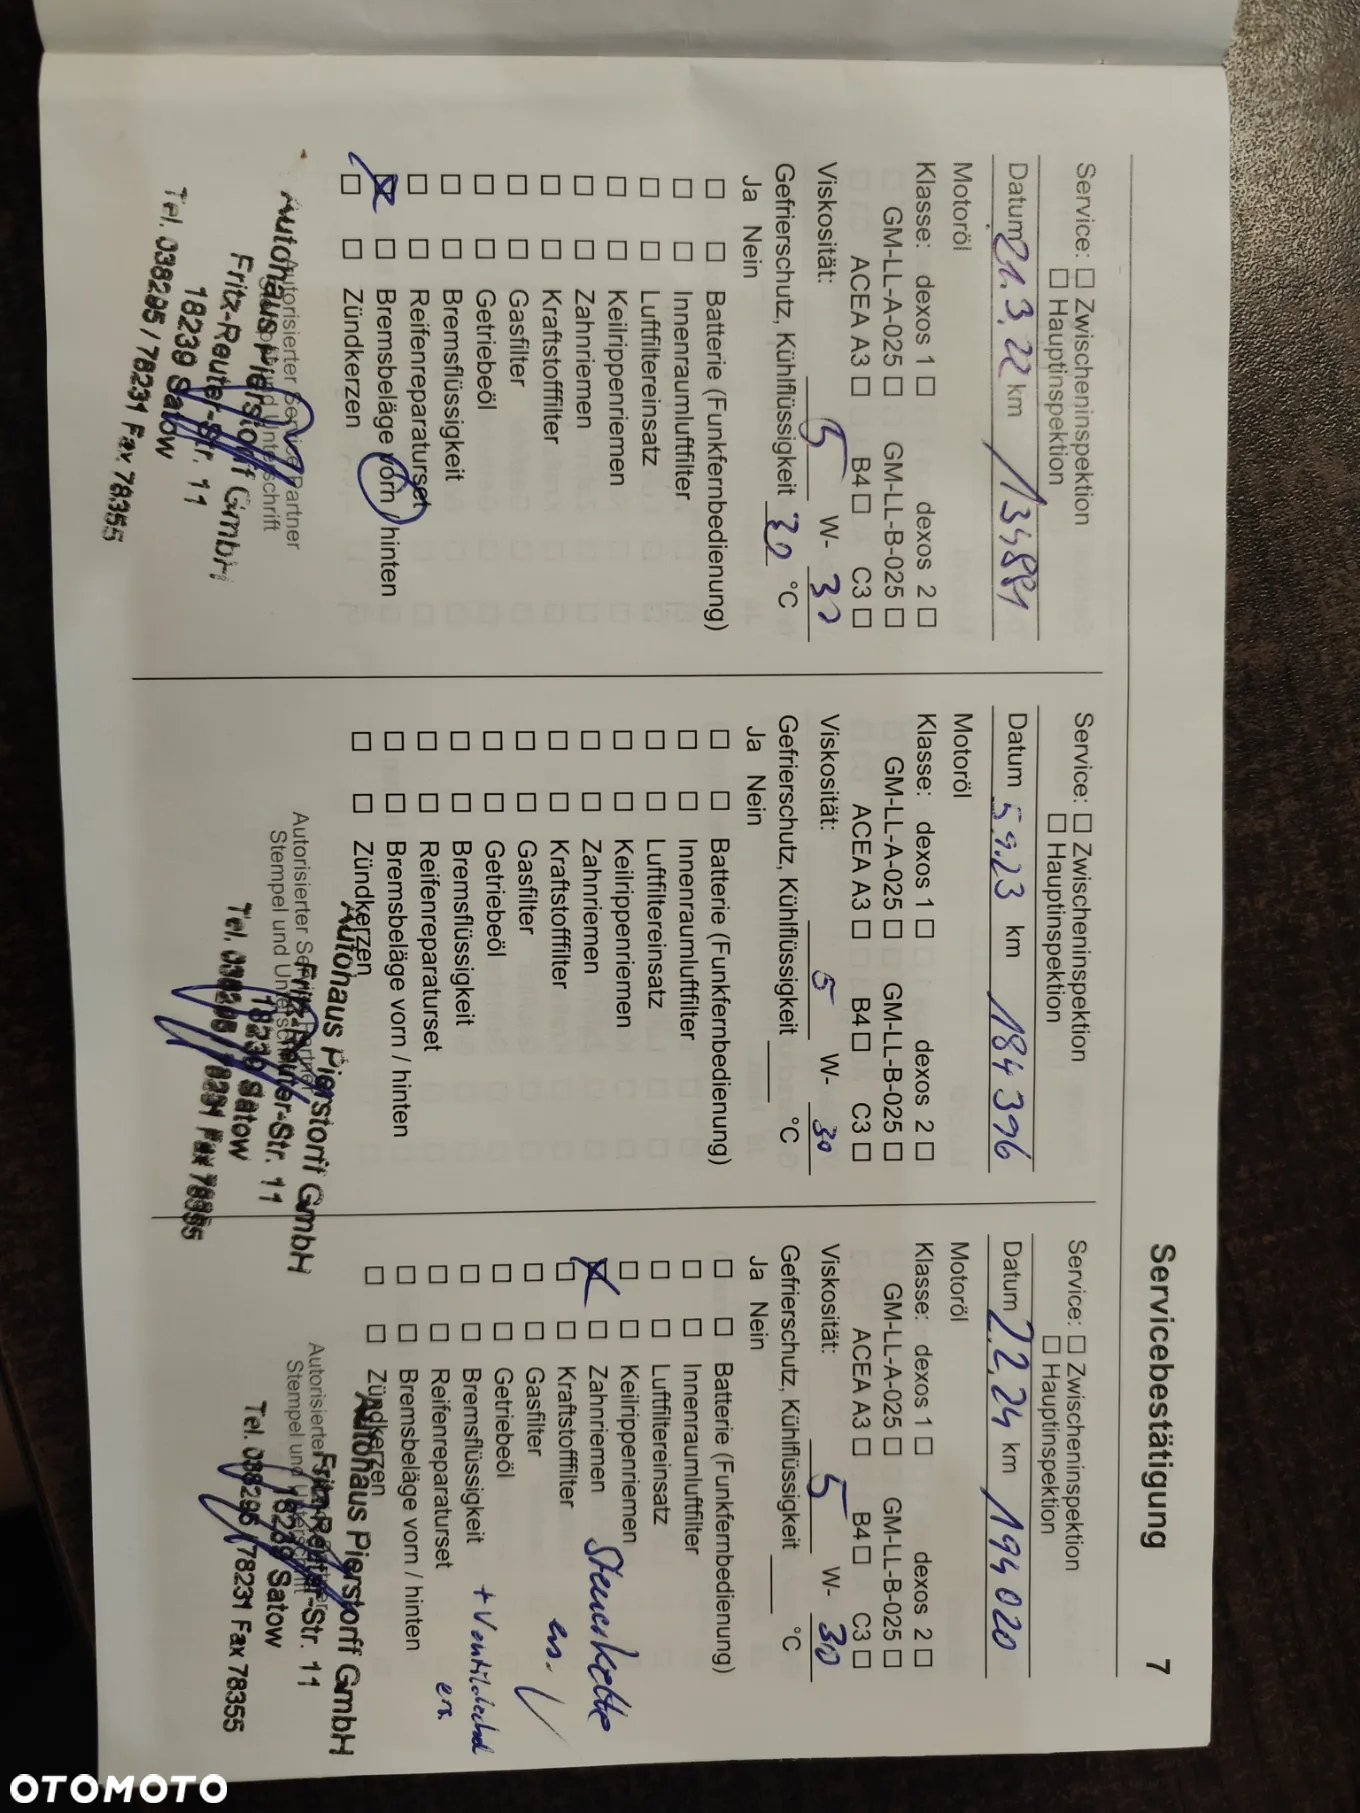 Servicebestätigung 7
Service: ☐ Zwischeninspektion
☐ Hauptinspektion
Datum 21.3.22 km 134881
Motoröl
Klasse: dexos 1 ☐ dexos 2 ☐
GM-LL-A-025 ☐ GM-LL-B-025 ☐
ACEA A3 ☐ B4 ☐ C3 ☐
Viskosität: 5 W- 30
Gefrierschutz, Kühlflüssigkeit 30 °C
Ja Nein
☐ ☐ Batterie (Funkfernbedienung)
☐ ☐ Innenraumluftfilter
☐ ☐ Luftfiltereinsatz
☐ ☐ Keilrippenriemen
☐ ☐ Zahnriemen
☐ ☐ Kraftstofffilter
☐ ☐ Gasfilter
☐ ☐ Getriebeöl
☐ ☐ Bremsflüssigkeit
☐ ☐ Reifenreparaturset
☒ ☐ Bremsbeläge vorn / hinten
☐ ☐ Zündkerzen
Autorisierter Service Partner
Stempel und Unterschrift
Autohaus Pierstorff GmbH
Fritz-Reuter-Str. 11
18239 Satow
Tel. 038295 / 78231 Fax 78355
Service: ☐ Zwischeninspektion
☐ Hauptinspektion
Datum 5.9.23 km 184396
Motoröl
Klasse: dexos 1 ☐ dexos 2 ☐
GM-LL-A-025 ☐ GM-LL-B-025 ☐
ACEA A3 ☐ B4 ☐ C3 ☐
Viskosität: 5 W- 30
Gefrierschutz, Kühlflüssigkeit °C
Ja Nein
☐ ☐ Batterie (Funkfernbedienung)
☐ ☐ Innenraumluftfilter
☐ ☐ Luftfiltereinsatz
☐ ☐ Keilrippenriemen
☐ ☐ Zahnriemen
☐ ☐ Kraftstofffilter
☐ ☐ Gasfilter
☐ ☐ Getriebeöl
☐ ☐ Bremsflüssigkeit
☐ ☐ Reifenreparaturset
☐ ☐ Bremsbeläge vorn / hinten
☐ ☐ Zündkerzen
Autorisierter Service Partner
Stempel und Unterschrift
Autohaus Pierstorff GmbH
Fritz-Reuter-Str. 11
18239 Satow
Tel. 038295 / 78231 Fax 78355
Service: ☐ Zwischeninspektion
☐ Hauptinspektion
Datum 2.2.24 km 194020
Motoröl
Klasse: dexos 1 ☐ dexos 2 ☐
GM-LL-A-025 ☐ GM-LL-B-025 ☐
ACEA A3 ☐ B4 ☐ C3 ☐
Viskosität: 5 W- 30
Gefrierschutz, Kühlflüssigkeit °C
Ja Nein
☐ ☐ Batterie (Funkfernbedienung)
☐ ☐ Innenraumluftfilter
☐ ☐ Luftfiltereinsatz
☐ ☐ Keilrippenriemen
☒ ☐ Zahnriemen Steuerkette
☐ ☐ Kraftstofffilter ers.
☐ ☐ Gasfilter
☐ ☐ Getriebeöl
☐ ☐ Bremsflüssigkeit + Ventildeckel
☐ ☐ Reifenreparaturset ers.
☐ ☐ Bremsbeläge vorn / hinten
☐ ☐ Zündkerzen
Autorisierter
Stempel und Unterschrift
Autohaus Pierstorff GmbH
Fritz-Reuter-Str. 11
18239 Satow
Tel. 038295 / 78231 Fax 78355
OTOMOTO